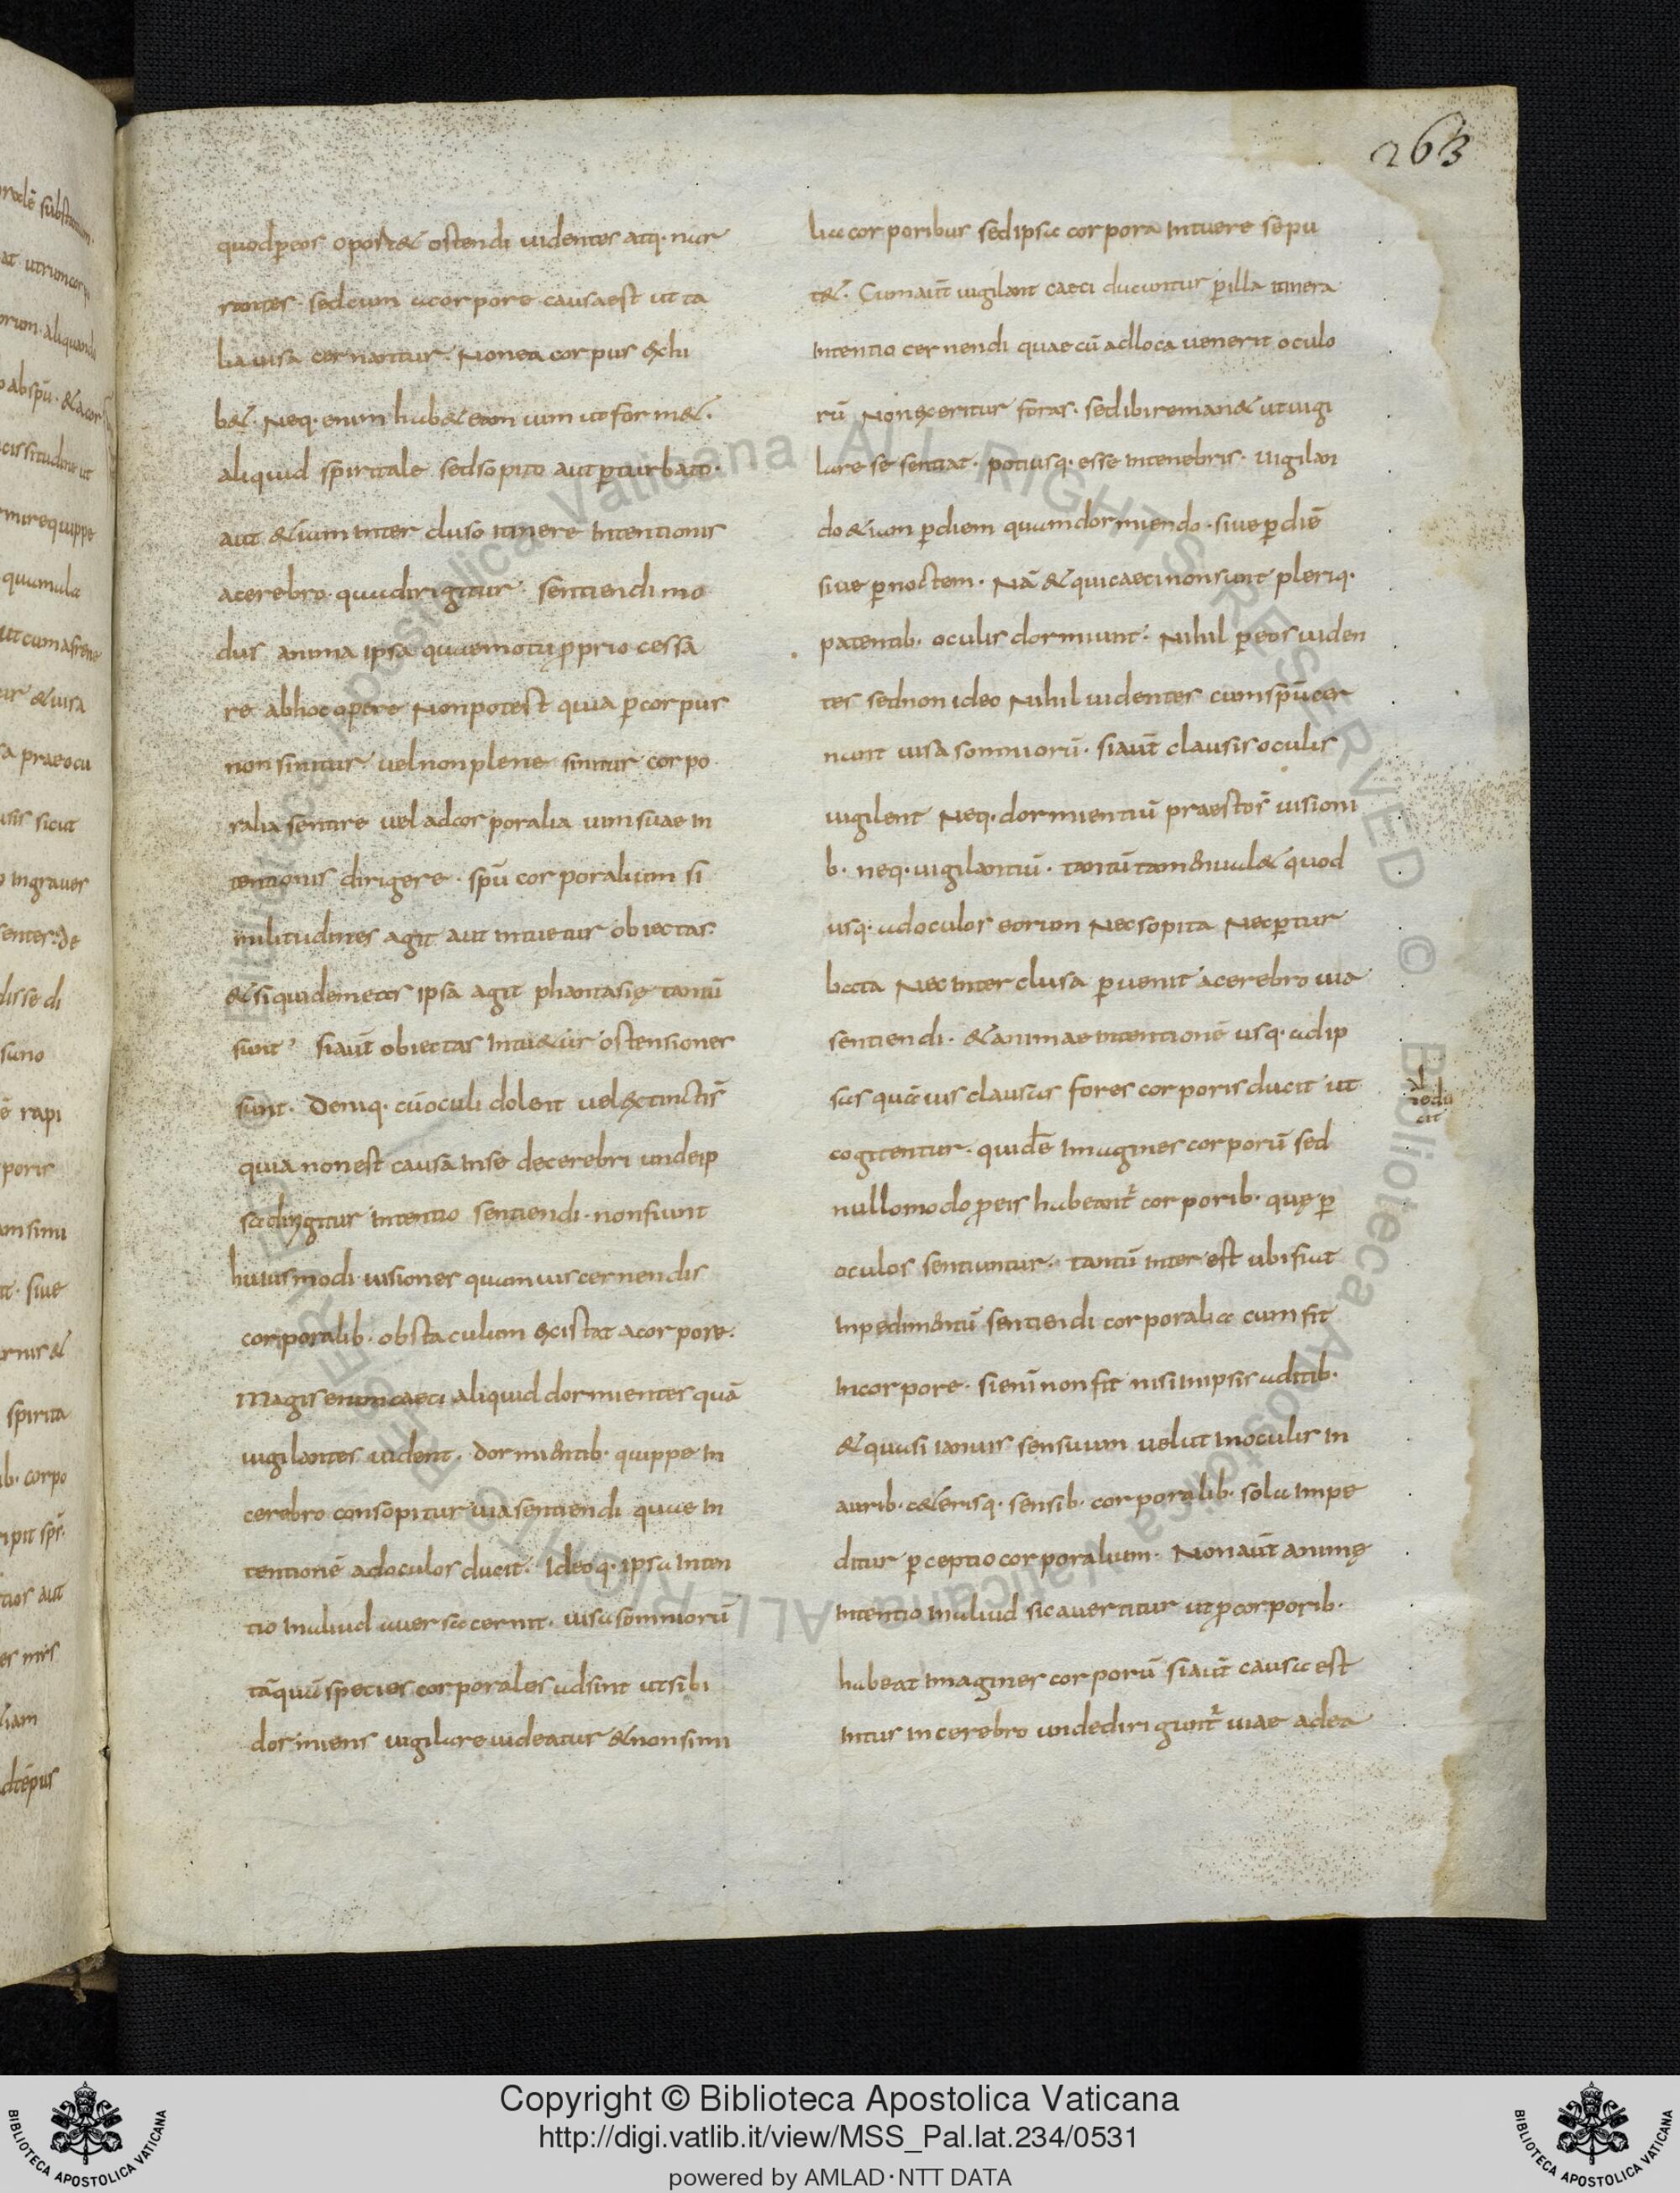 263
quod p̲ eos oport& ostendi uidentes atq· nar
rantes· sed cum a corpore causa est ut ta
lia uisa cernantur· Non ea corpus exhi
b&· Neq· enim hab& eam uim ut form&·
aliquid spiritale sed sopito aut p̲turbato·
aut &iam inter cluso itinere intentionis
a cerebro· qua dirigitur sentiendi mo
dus anima ipsa quae motu p̲prio cessa
re ab hoc opere Non potest quia p̲ corpus
non sinitur uel non plene sinitur corpo
ralia sentire uel ad corporalia uim suae in
tentionis dirigere· spū corporalium si
militudines agit aut intuetur obiectas·
& si quidem eas ipsa agit phantasię tantū
sunt· si aūt obiectas intu&ur ostensiones
sunt· Deniq· cū oculi dolent uel extinctis
quia non est causa in sede cerebri unde ip
sa dirigitur intentio sentiendi· non fiunt
huius modi uisiones quamuis cernendis
corporalib· obstaculum existat a corpore·
Magis enim caeci aliquid dormientes quā
uigilantes uident· Dormientib· quippe in
cerebro consopitur uia sentiendi quae in
tentionē ad oculos ducit· Ideoq· ipsa inten
tio in aliud auersa cernit· uisa somniorū
tāquā species corporales adsint ut sibi
dormiens uigilare uideatur & non simi
lia corporibus sed ipsa corpora intuere se pu
t&· Cum aūt uigilant caeci ducuntur p̲ illa itinera
intentio cernendi quae cū ad loca uenerit oculo
rū Non exeritur foras· sed ibi reman& ut uigi
lare se sentiat· potiusq· esse in tenebris· uigilan
do &iam p̲ diem quam dormiendo· siue p̲ diē
siue p̲ noctem· Nā & qui caeci non sunt pleriq·
patentib· oculis dormiunt· Nihil p̲ eos uiden
tes sed non ideo Nihil uidentes cum spū cer
nunt uisa somniorū· si aūt clausis oculis
uigilent Neq· dormientiū praesto s̄ uisioni
b· neq· uigilantiū· tantū tamen ual& quod
usq· ad oculos eorum Nec sopita Nec p̲tur
bata Nec inter clusa p̲uenit a cerebro uia
sentiendi· & animae intentionē usq· ad ip
sas quāuis clausas fores corporis ducit ut
redu
cit
cogitentur· quidē imagines corporū sed
nullo modo p̲ eis habeant̄ corporib· quę p̲
oculos sentiuntur· tantū inter est ubi fiat
inpedimentū sentiendi corporalia cum fit
in corpore· si enī non fit nisi in ipsis aditib·
& quasi ianuis sensuum uelut in oculis in
aurib· c&erisq· sensib· corporalib· sola impe
ditur p̲ceptio corporalium· Non aūt animę
intentio in aliud sic auertitur ut p̲ corporib·
habeat imagines corporū si aūt causa est
intus in cerebro unde dirigunt̄ uiae ad ea
Copyright © Biblioteca Apostolica Vaticana
http://digi.vatlib.it/view/MSS_Pal.lat.234/0531
powered by AMLAD·NTT DATA
BIBLIOTECA APOSTOLICA VATICANA
BIBLIOTECA APOSTOLICA VATICANA